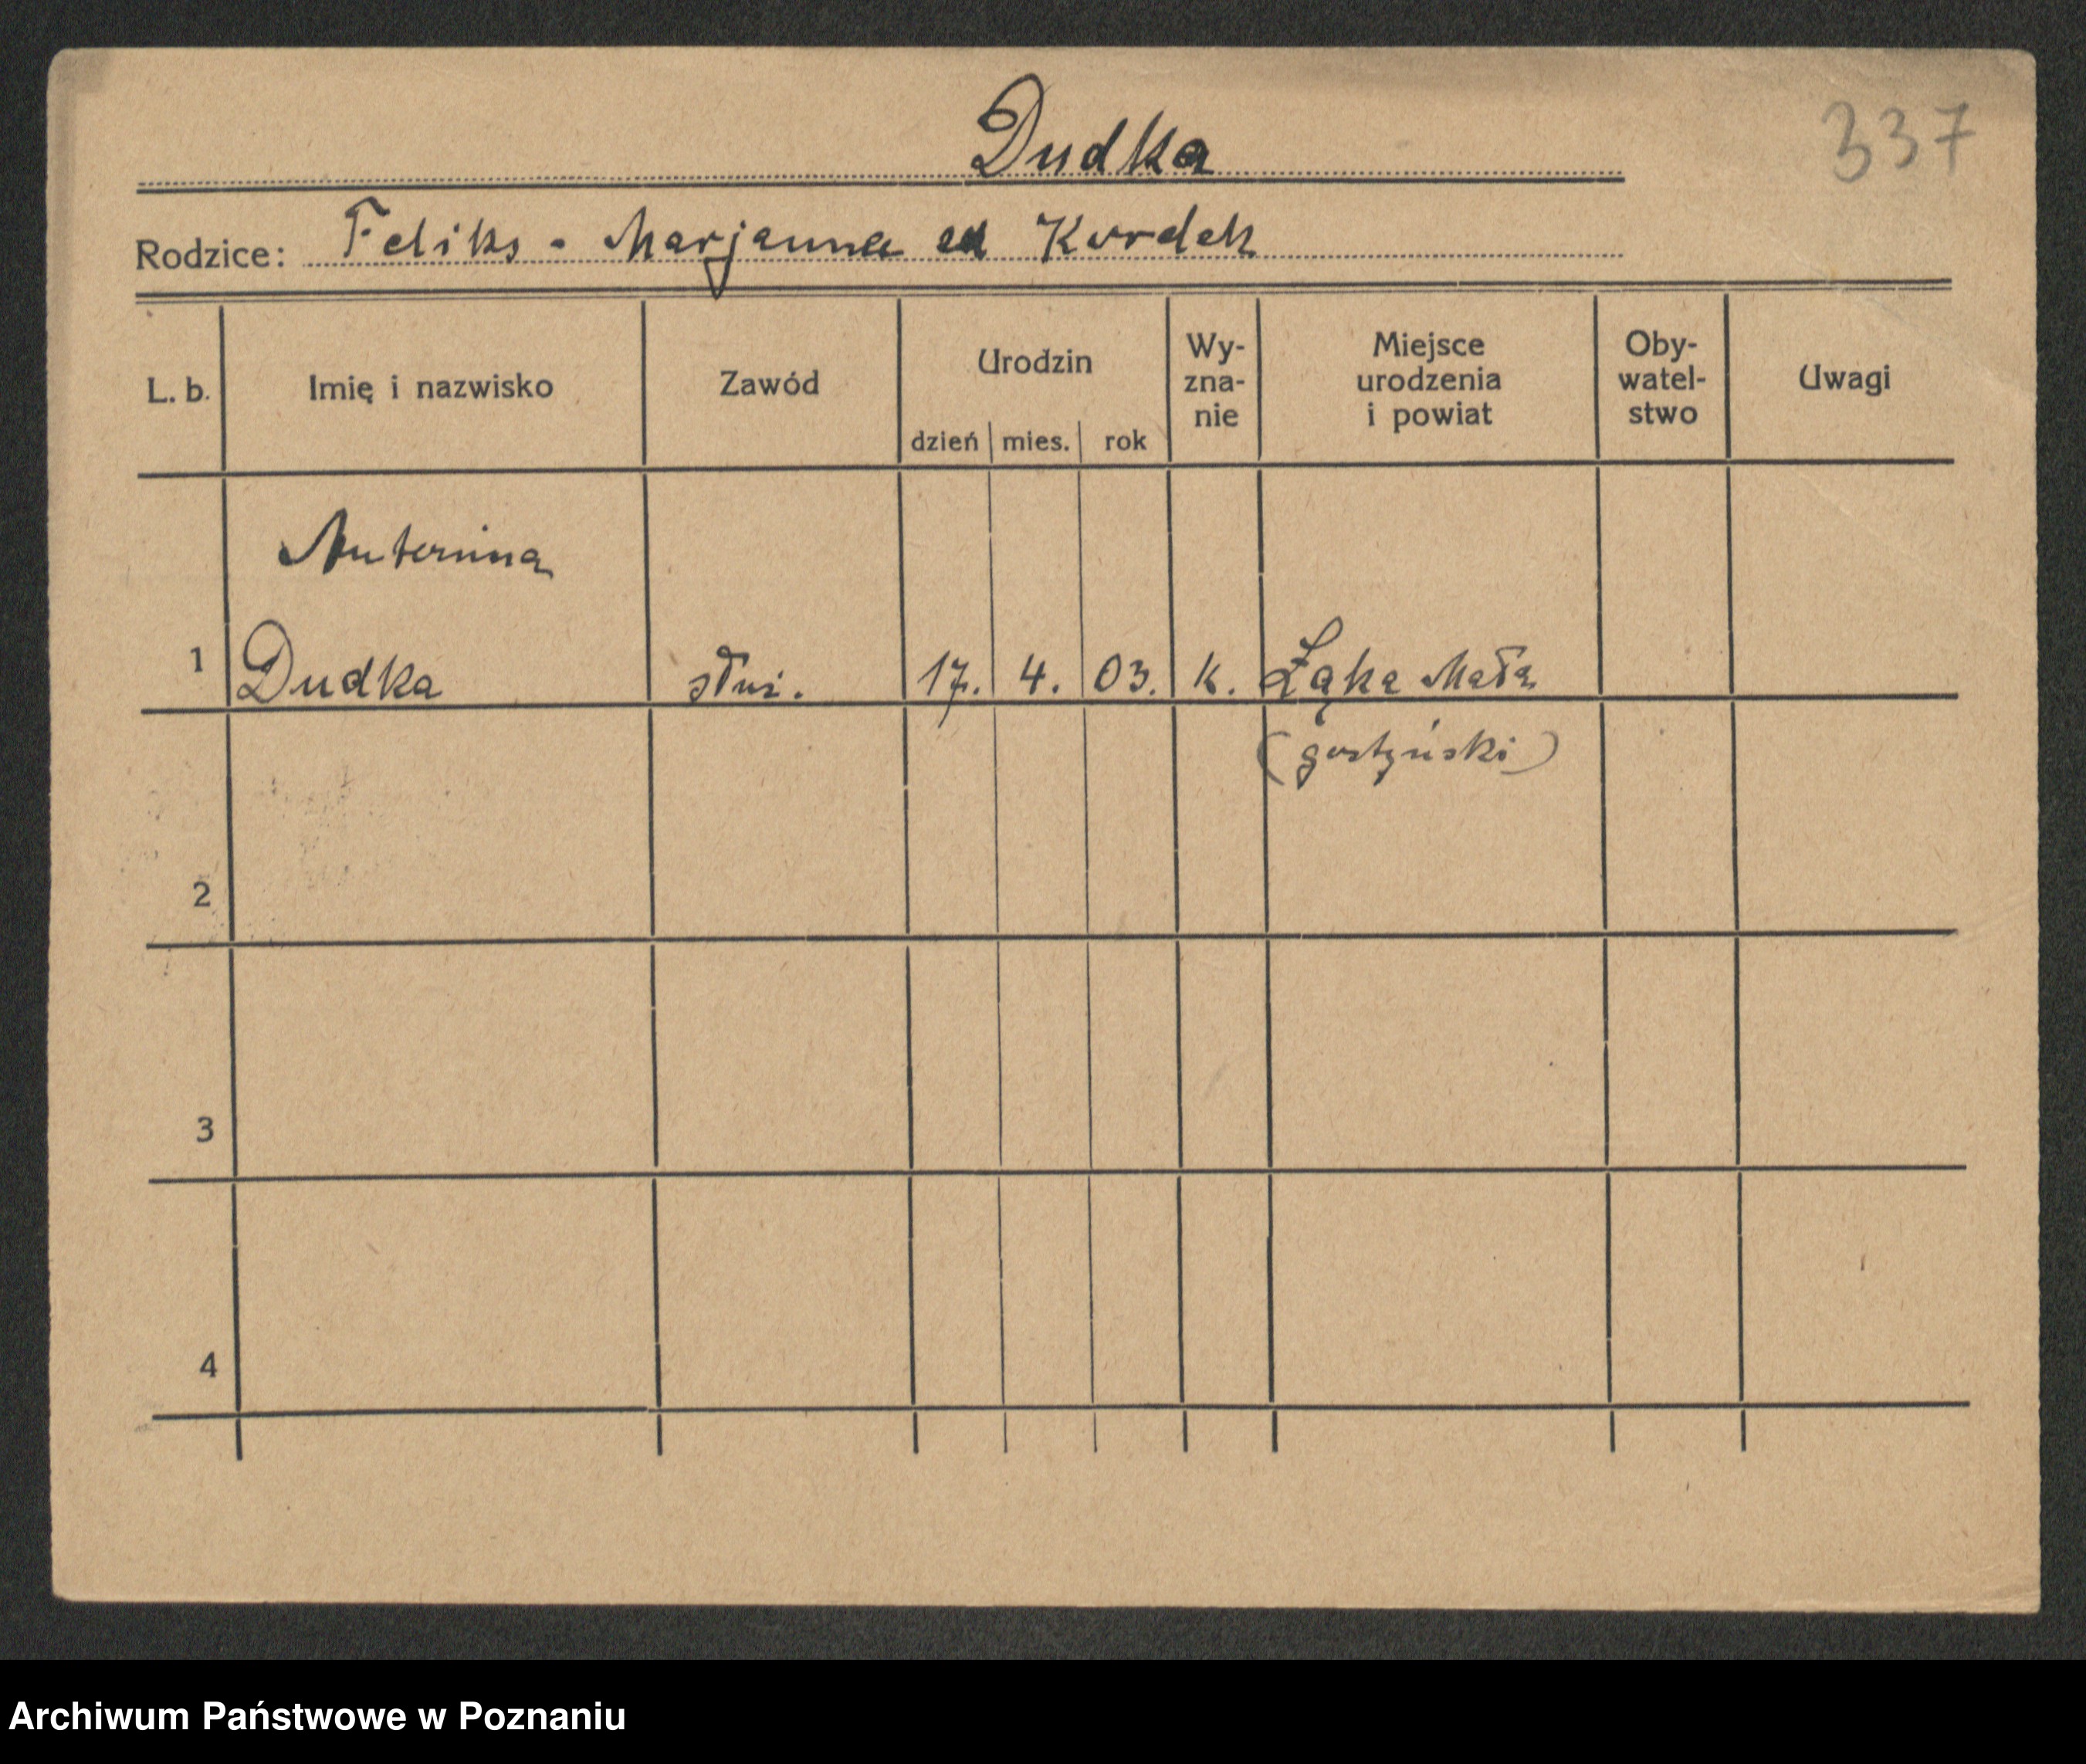 337
Dudka
Rodzice: Feliks - Marjanna Kordek
L. b.
Imię i nazwisko
Zawód
Urodzin
dzień mies. rok
Wy-
zna-
nie
Miejsce
urodzenia
i powiat
Oby-
watel-
stwo
Uwagi
Antonina
1 Dudka służ. 17. 4. 03. k. Łąka Mała
(gostyński)
2
3
4
Archiwum Państwowe w Poznaniu